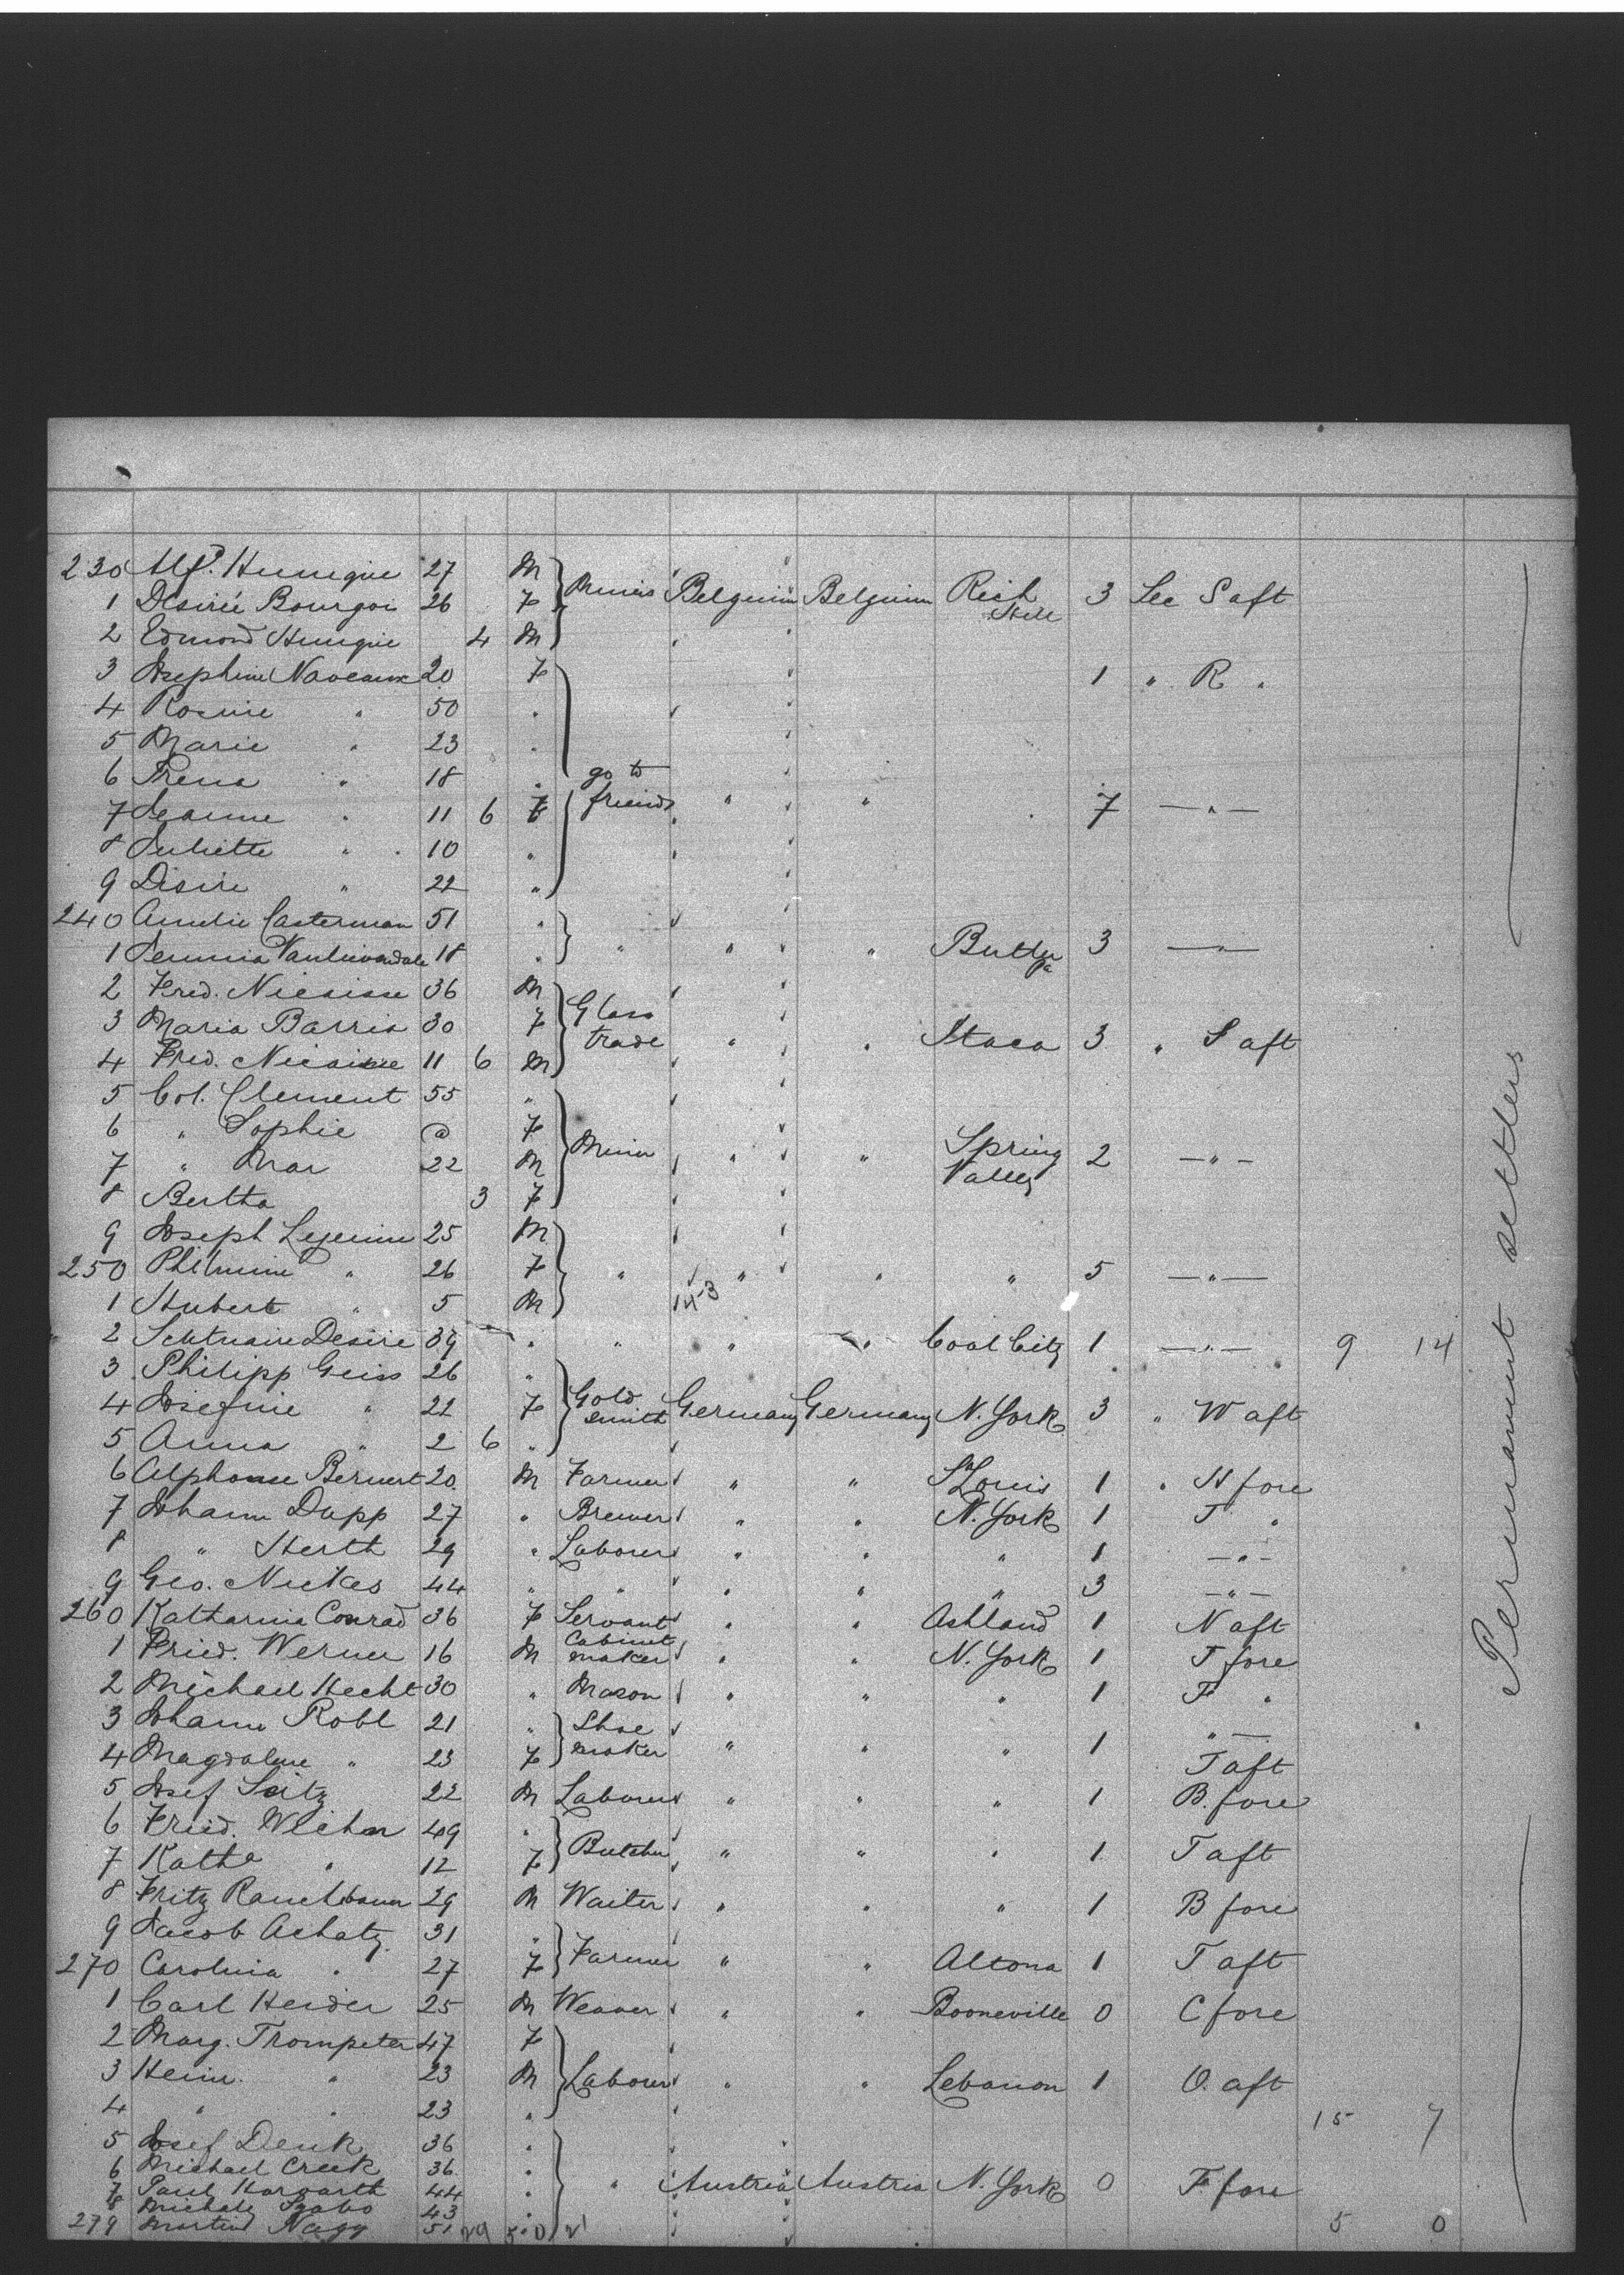 230 Alf. Hunique 27 M
1 Désirée Bourgoi 26 F Miner Belguim Belguim Rich Hill 3 Sec S aft
2 Edmond Hunique 4 M "
3 Josephine Naveaux 20 F 1 " R "
4 Rosine " 50 "
5 Marie " 23 "
6 Irena " 18 " go to
7 Jeanne " 11 6 F friends " " 7 — " —
8 Juliette " 10 "
9 Disire " 22 "
240 Amelie Casterman 51 "
1 18 " " " " Butler Pa 3 — " —
2 Fred. Nicaisse 36 M Glass
3 Maria Barria 30 F trade " " Itaca 3 " S aft
4 Fred. Nicaisse 11 6 M
5 Col. Clement 55 "
6 " Sophie F
7 " Mar 22 M Miner " " Spring Valley 2 — " —
8 Bertha 3 F
9 Joseph Lejeune 25 M
250 Philmine " 26 F " " " " 5 — " —
1 Hubert " 5 M 14-3
2 Desire 39 " " " " Coal City 1 — " — 9 14
3 Philipp Geiss 26 "
4 Josefine " 22 F Gold smith Germany Germany N. York 3 " W aft
5 Anna " 2 6 "
6 Alphonse Bernert 20 M Farmer " " St Louis 1 " H fore
7 Johann Dapp 27 " Brewer " " N. York 1 T "
8 " Herth 29 " Laborer " " " 1 — " —
9 Geo. Nickes 44 " " " " " 3 — " —
260 Katharina Conrad 36 F Servant " " Ashland 1 N aft
1 Fried. Werner 16 M Cabinet maker " " N. York 1 T fore
2 Michael Hecht 30 " Mason " " " 1 F "
3 Johann Robl 21 " Shoe " —
4 Magdalene " 23 F maker " " " 1 T aft
5 Josef Seitz 22 M Laborer " " " 1 B. fore
6 Fried. 49 "
7 Kathe " 12 F Butcher " " " 1 T aft
8 Fritz Rauchbaum 29 M Waiter " " " 1 B fore
9 Jacob Achatz 31 "
270 Carolina " 27 F Farmer " " Altona 1 T aft
1 Carl Heider 25 M Weaver " " Booneville 0 C fore
2 Marg. Trompeter 47 F
3 Hein. " 23 M Laborer " " Lebanon 1 O. aft
4 " " 23 " 15 7
5 Josef Denk 36 "
6 Michael Creek 36 "
7 Paul Horvarth 44 " " Austria Austria N. York 0 F. fore
8 Michaly Szabo 43 "
279 Martin Nagy 51 29 5 0 21 5 0
Permanment settlers